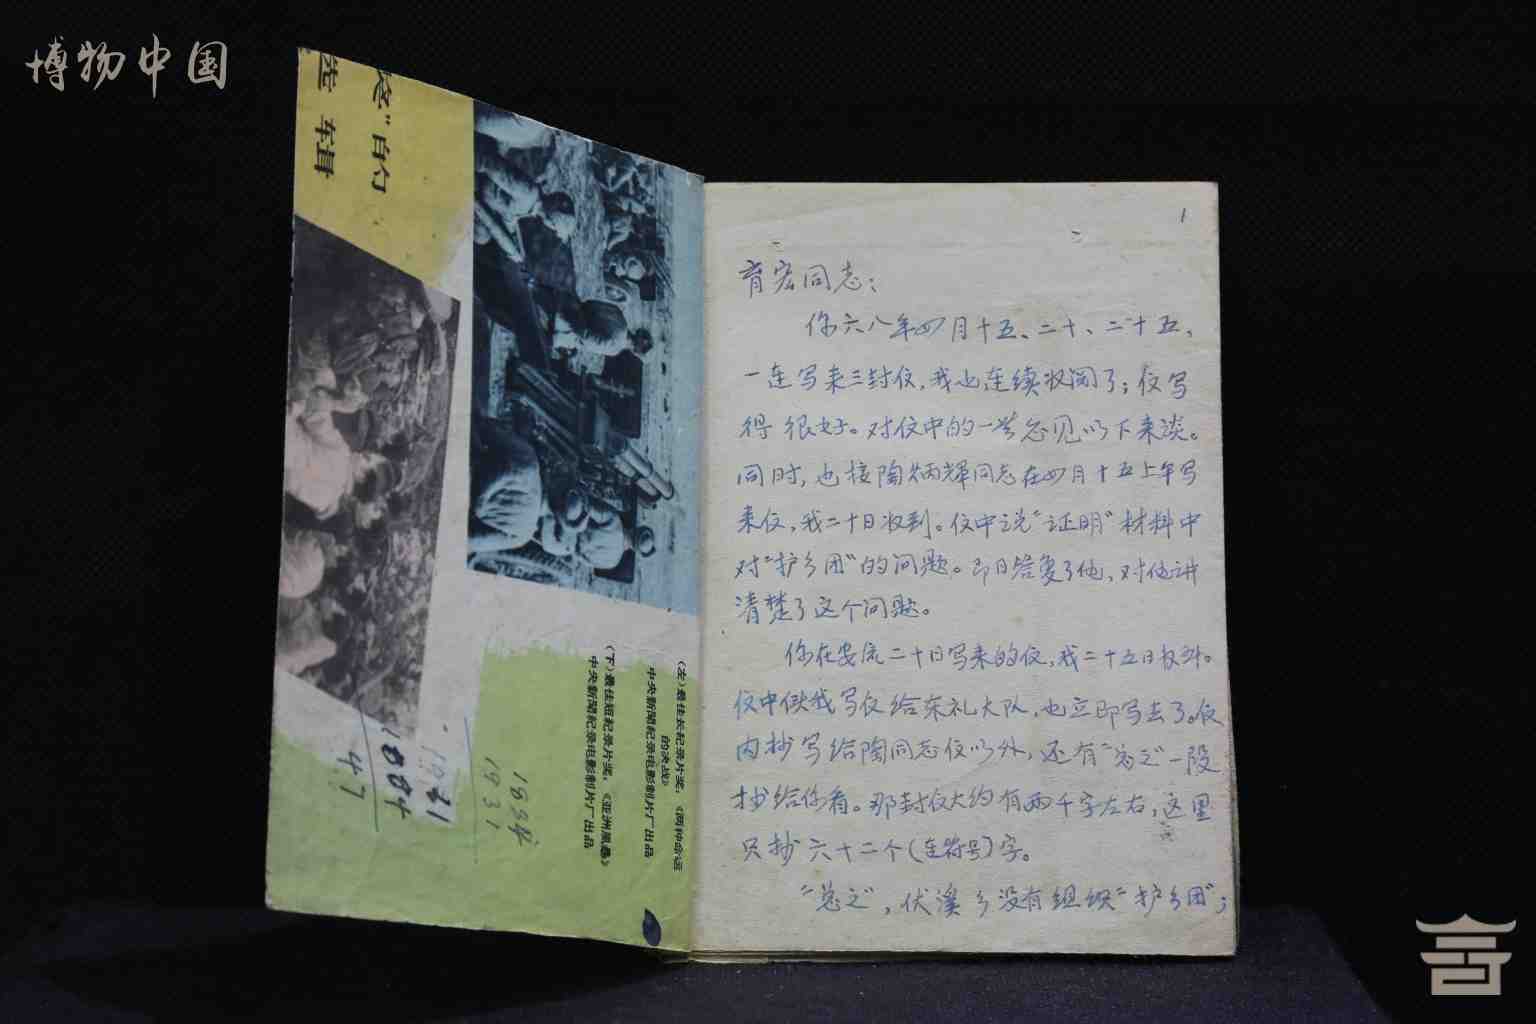 博物中国
的
选辑
(左)最佳长紀录片奖,《两种命运
的决战》
中央新聞紀录电影制片厂出品
(下)最佳短紀录片奖,《亚洲風暴》
中央新聞紀录电影制片厂出品
1884
47
1931
1
育宏同志:
你六八年四月十五、二十、二十五、
一连写来三封信,我也连续收阅了;信写
得很好。对信中的一些意见以下来谈。
同时,也接陶炳辉同志在四月十五上午写
来信,我二十日收到。信中说“证明”材料中
对“护乡团”的问题。即日答复了他,对他讲
清楚了这个问题。
你在安流二十日写来的信,我二十五日收到。
信中供我写信给东礼大队,也立即写去了。信
内抄写给陶同志信以外,还有“总之”一段
抄给你看。那封信大约有两千字左右,这里
只抄六十二个(连符号)字。
“总之”,伏溪乡没有组织“护乡团”;